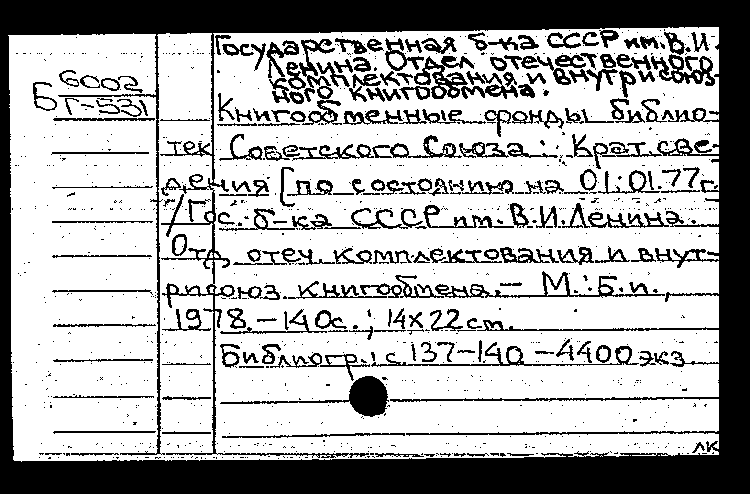 Государственная б-ка СССР им. В.И.
Ленина. Отдел отечественного
комплектования и внутрисоюз-
ного книгообмена.
Б 6002
Г-531
Книгообменные фонды библио-
тек Советского Союза: Крат. све-
дения [по состоянию на 01.01.77г.
/Гос. б-ка СССР им. В.И. Ленина.
Отд. отеч. комплектования и внут-
рисоюз. книгообмена. – М.: Б.и.,
1978. – 140с.; 14х22 cm.
Библиогр.: с. 137–140 – 4400 экз.
ЛК